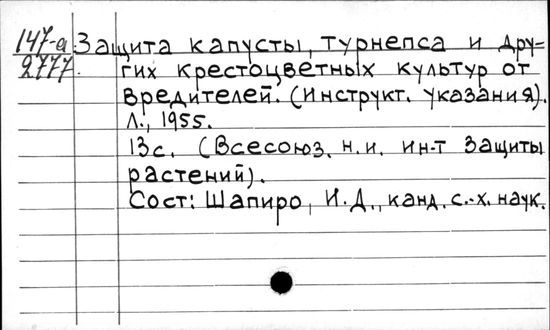 147-а Защита капусты, турнепса и дру=
2777. гих крестоцветных культур от
вредителей. (Инструкт. указания).
Л., 1955.
13с. (Всесоюз. н.и. ин-т защиты
растений).
Сост: Шапиро, И.Д., канд. с.-х. наук.